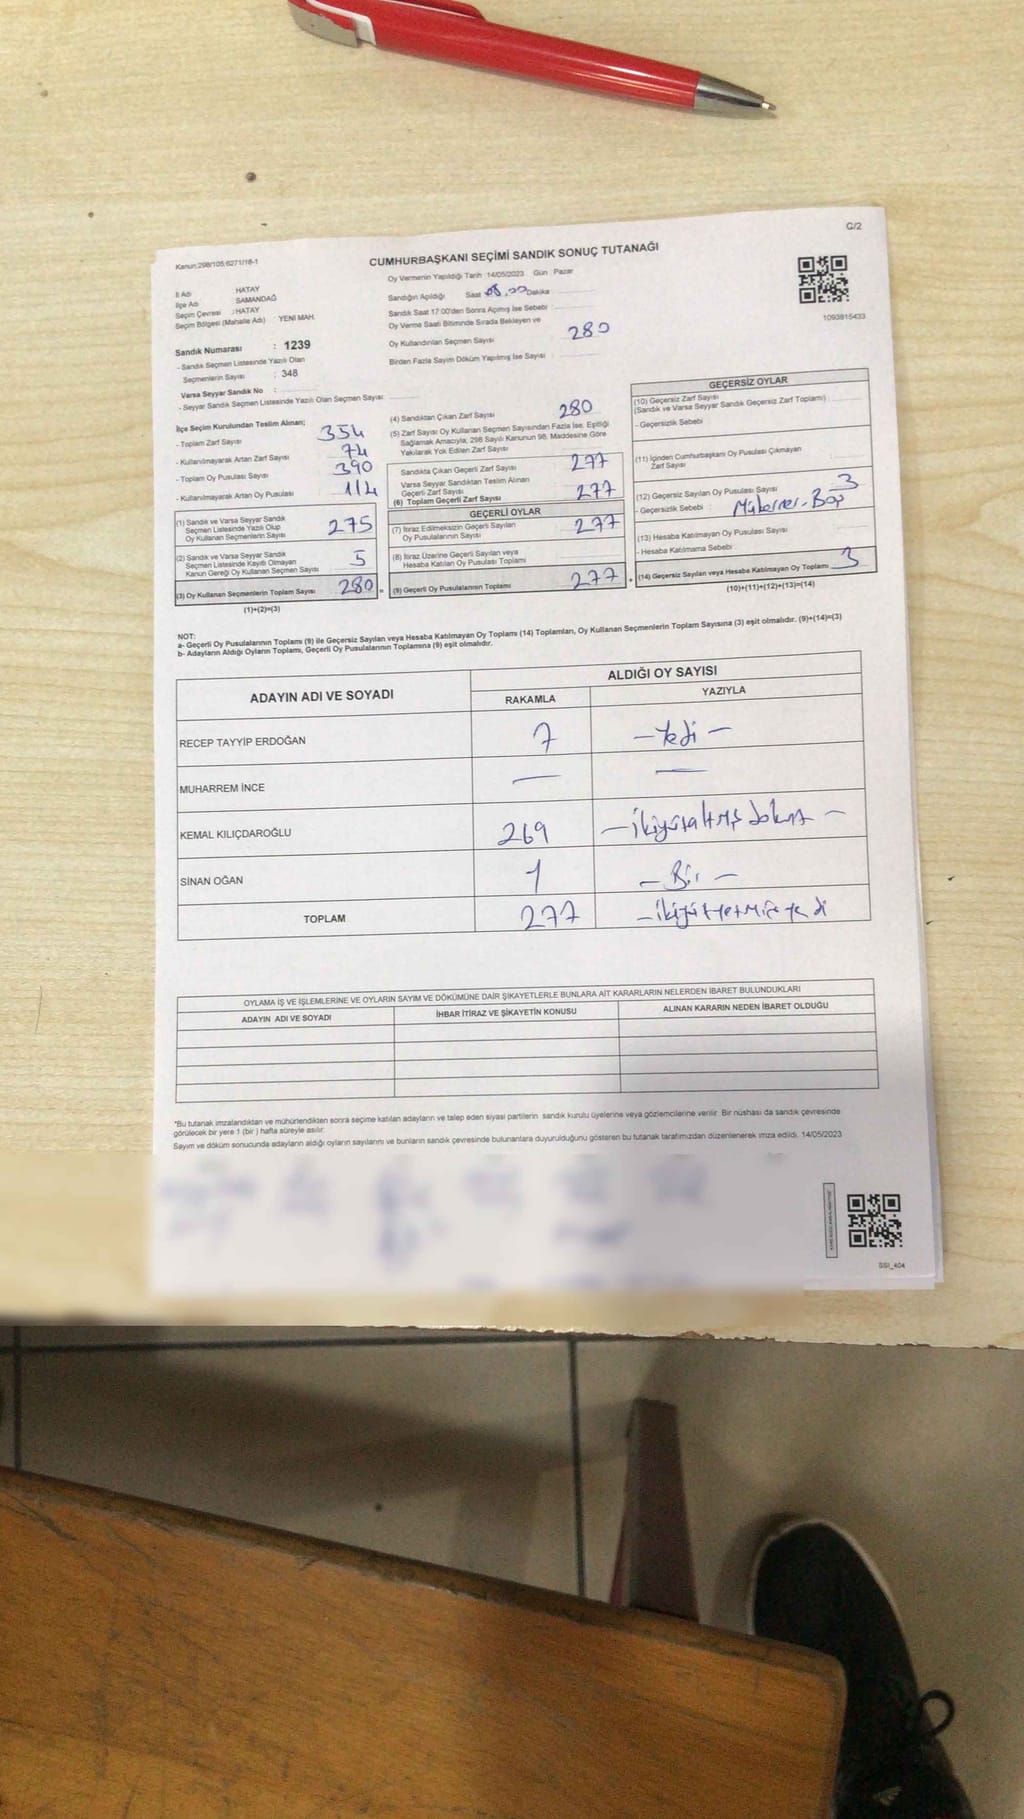 G/2
Kanun;298/105;6271/18-1
CUMHURBAŞKANI SEÇİMİ SANDIK SONUÇ TUTANAĞI
Oy Vermenin Yapıldığı Tarih :14/05/2023 Gün : Pazar
İl Adı : HATAY
İlçe Adı : SAMANDAĞ
Seçim Çevresi : HATAY
Seçim Bölgesi (Mahalle Adı) YENİ MAH.
Sandığın Açıldığı Saat Dakika
Sandık Saat 17:00'den Sonra Açılmış İse Sebebi
Oy Verme Saati Bitiminde Sırada Bekleyen ve
Oy Kullandırılan Seçmen Sayısı 280
Birden Fazla Sayım Döküm Yapılmış İse Sayısı :
1093815433
Sandık Numarası : 1239
- Sandık Seçmen Listesinde Yazılı Olan
Seçmenlerin Sayısı : 348
Varsa Seyyar Sandık No :
- Seyyar Sandık Seçmen Listesinde Yazılı Olan Seçmen Sayısı:
İlçe Seçim Kurulundan Teslim Alınan;
- Toplam Zarf Sayısı 354
- Kullanılmayarak Artan Zarf Sayısı 74
- Toplam Oy Pusulası Sayısı 390
- Kullanılmayarak Artan Oy Pusulası 114
(1) Sandık ve Varsa Seyyar Sandık
Seçmen Listesinde Yazılı Olup
Oy Kullanan Seçmenlerin Sayısı 275
(2) Sandık ve Varsa Seyyar Sandık
Seçmen Listesinde Kayıtlı Olmayan
Kanun Gereği Oy Kullanan Seçmen Sayısı 5
(3) Oy Kullanan Seçmenlerin Toplam Sayısı 280 =
(1)+(2)=(3)
(4) Sandıktan Çıkan Zarf Sayısı 280
(5) Zarf Sayısı Oy Kullanan Seçmen Sayısından Fazla İse, Eşitliği
Sağlamak Amacıyla, 298 Sayılı Kanunun 98. Maddesine Göre
Yakılarak Yok Edilen Zarf Sayısı
Sandıkta Çıkan Geçerli Zarf Sayısı 277
Varsa Seyyar Sandıktan Teslim Alınan
Geçerli Zarf Sayısı
(6) Toplam Geçerli Zarf Sayısı 277
GEÇERLİ OYLAR
(7) İtiraz Edilmeksizin Geçerli Sayılan
Oy Pusulalarının Sayısı 277
(8) İtiraz Üzerine Geçerli Sayılan veya
Hesaba Katılan Oy Pusulası Toplamı
(9) Geçerli Oy Pusulalarının Toplamı 277 +
GEÇERSİZ OYLAR
(10) Geçersiz Zarf Sayısı
(Sandık ve Varsa Seyyar Sandık Geçersiz Zarf Toplamı)
- Geçersizlik Sebebi
(11) İçinden Cumhurbaşkanı Oy Pusulası Çıkmayan
Zarf Sayısı
(12) Geçersiz Sayılan Oy Pusulası Sayısı 3
- Geçersizlik Sebebi : Mükerrer - Boş
(13) Hesaba Katılmayan Oy Pusulası Sayısı
- Hesaba Katılmama Sebebi
(14) Geçersiz Sayılan veya Hesaba Katılmayan Oy Toplamı 3
(10)+(11)+(12)+(13)=(14)
NOT:
a- Geçerli Oy Pusulalarının Toplamı (9) ile Geçersiz Sayılan veya Hesaba Katılmayan Oy Toplamı (14) Toplamları, Oy Kullanan Seçmenlerin Toplam Sayısına (3) eşit olmalıdır. (9)+(14)=(3)
b- Adayların Aldığı Oyların Toplamı, Geçerli Oy Pusulalarının Toplamına (9) eşit olmalıdır.
ADAYIN ADI VE SOYADI ALDIĞI OY SAYISI
RAKAMLA YAZIYLA
RECEP TAYYİP ERDOĞAN 7 - Yedi -
MUHARREM İNCE — —
KEMAL KILIÇDAROĞLU 269 - ikiyüzaltmış dokuz -
SİNAN OĞAN 1 - Bir -
TOPLAM 277 - ikiyüzyetmişyedi
OYLAMA İŞ VE İŞLEMLERİNE VE OYLARIN SAYIM VE DÖKÜMÜNE DAİR ŞİKAYETLERLE BUNLARA AİT KARARLARIN NELERDEN İBARET BULUNDUKLARI
ADAYIN ADI VE SOYADI İHBAR İTİRAZ VE ŞİKAYETİN KONUSU ALINAN KARARIN NEDEN İBARET OLDUĞU
*Bu tutanak imzalandıktan ve mühürlendikten sonra seçime katılan adayların ve talep eden siyasi partilerin sandık kurulu üyelerine veya gözlemcilerine verilir. Bir nüshası da sandık çevresinde
görülecek bir yere 1 (bir) hafta süreyle asılır.
Sayım ve döküm sonucunda adayların aldığı oyların sayılarını ve bunların sandık çevresinde bulunanlara duyurulduğunu gösteren bu tutanak tarafımızdan düzenlenerek imza edildi. 14/05/2023
SSI_404